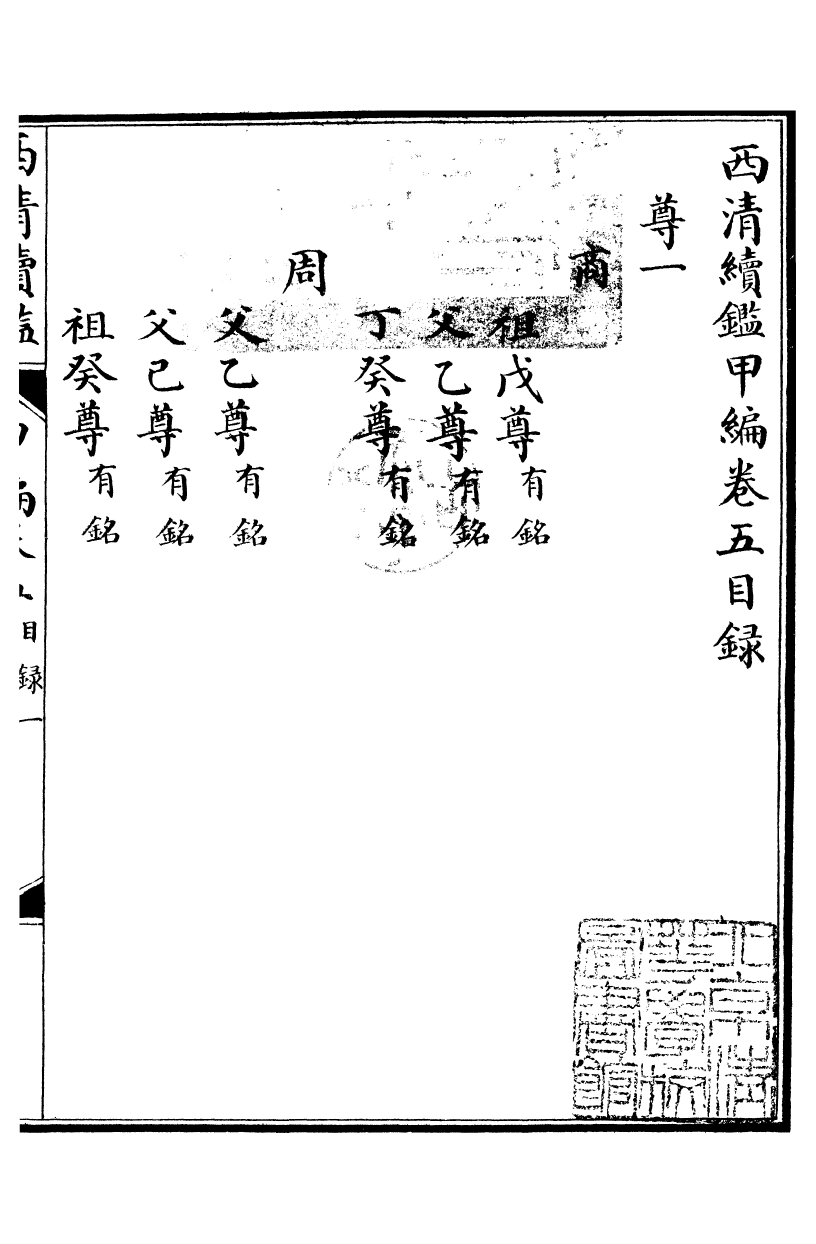 西清續鑑甲編卷五目録
尊一
商
祖戊尊有銘
父乙尊有銘
丁癸尊有銘
周
父乙尊有銘
父已尊有銘
祖癸尊有銘
目録一